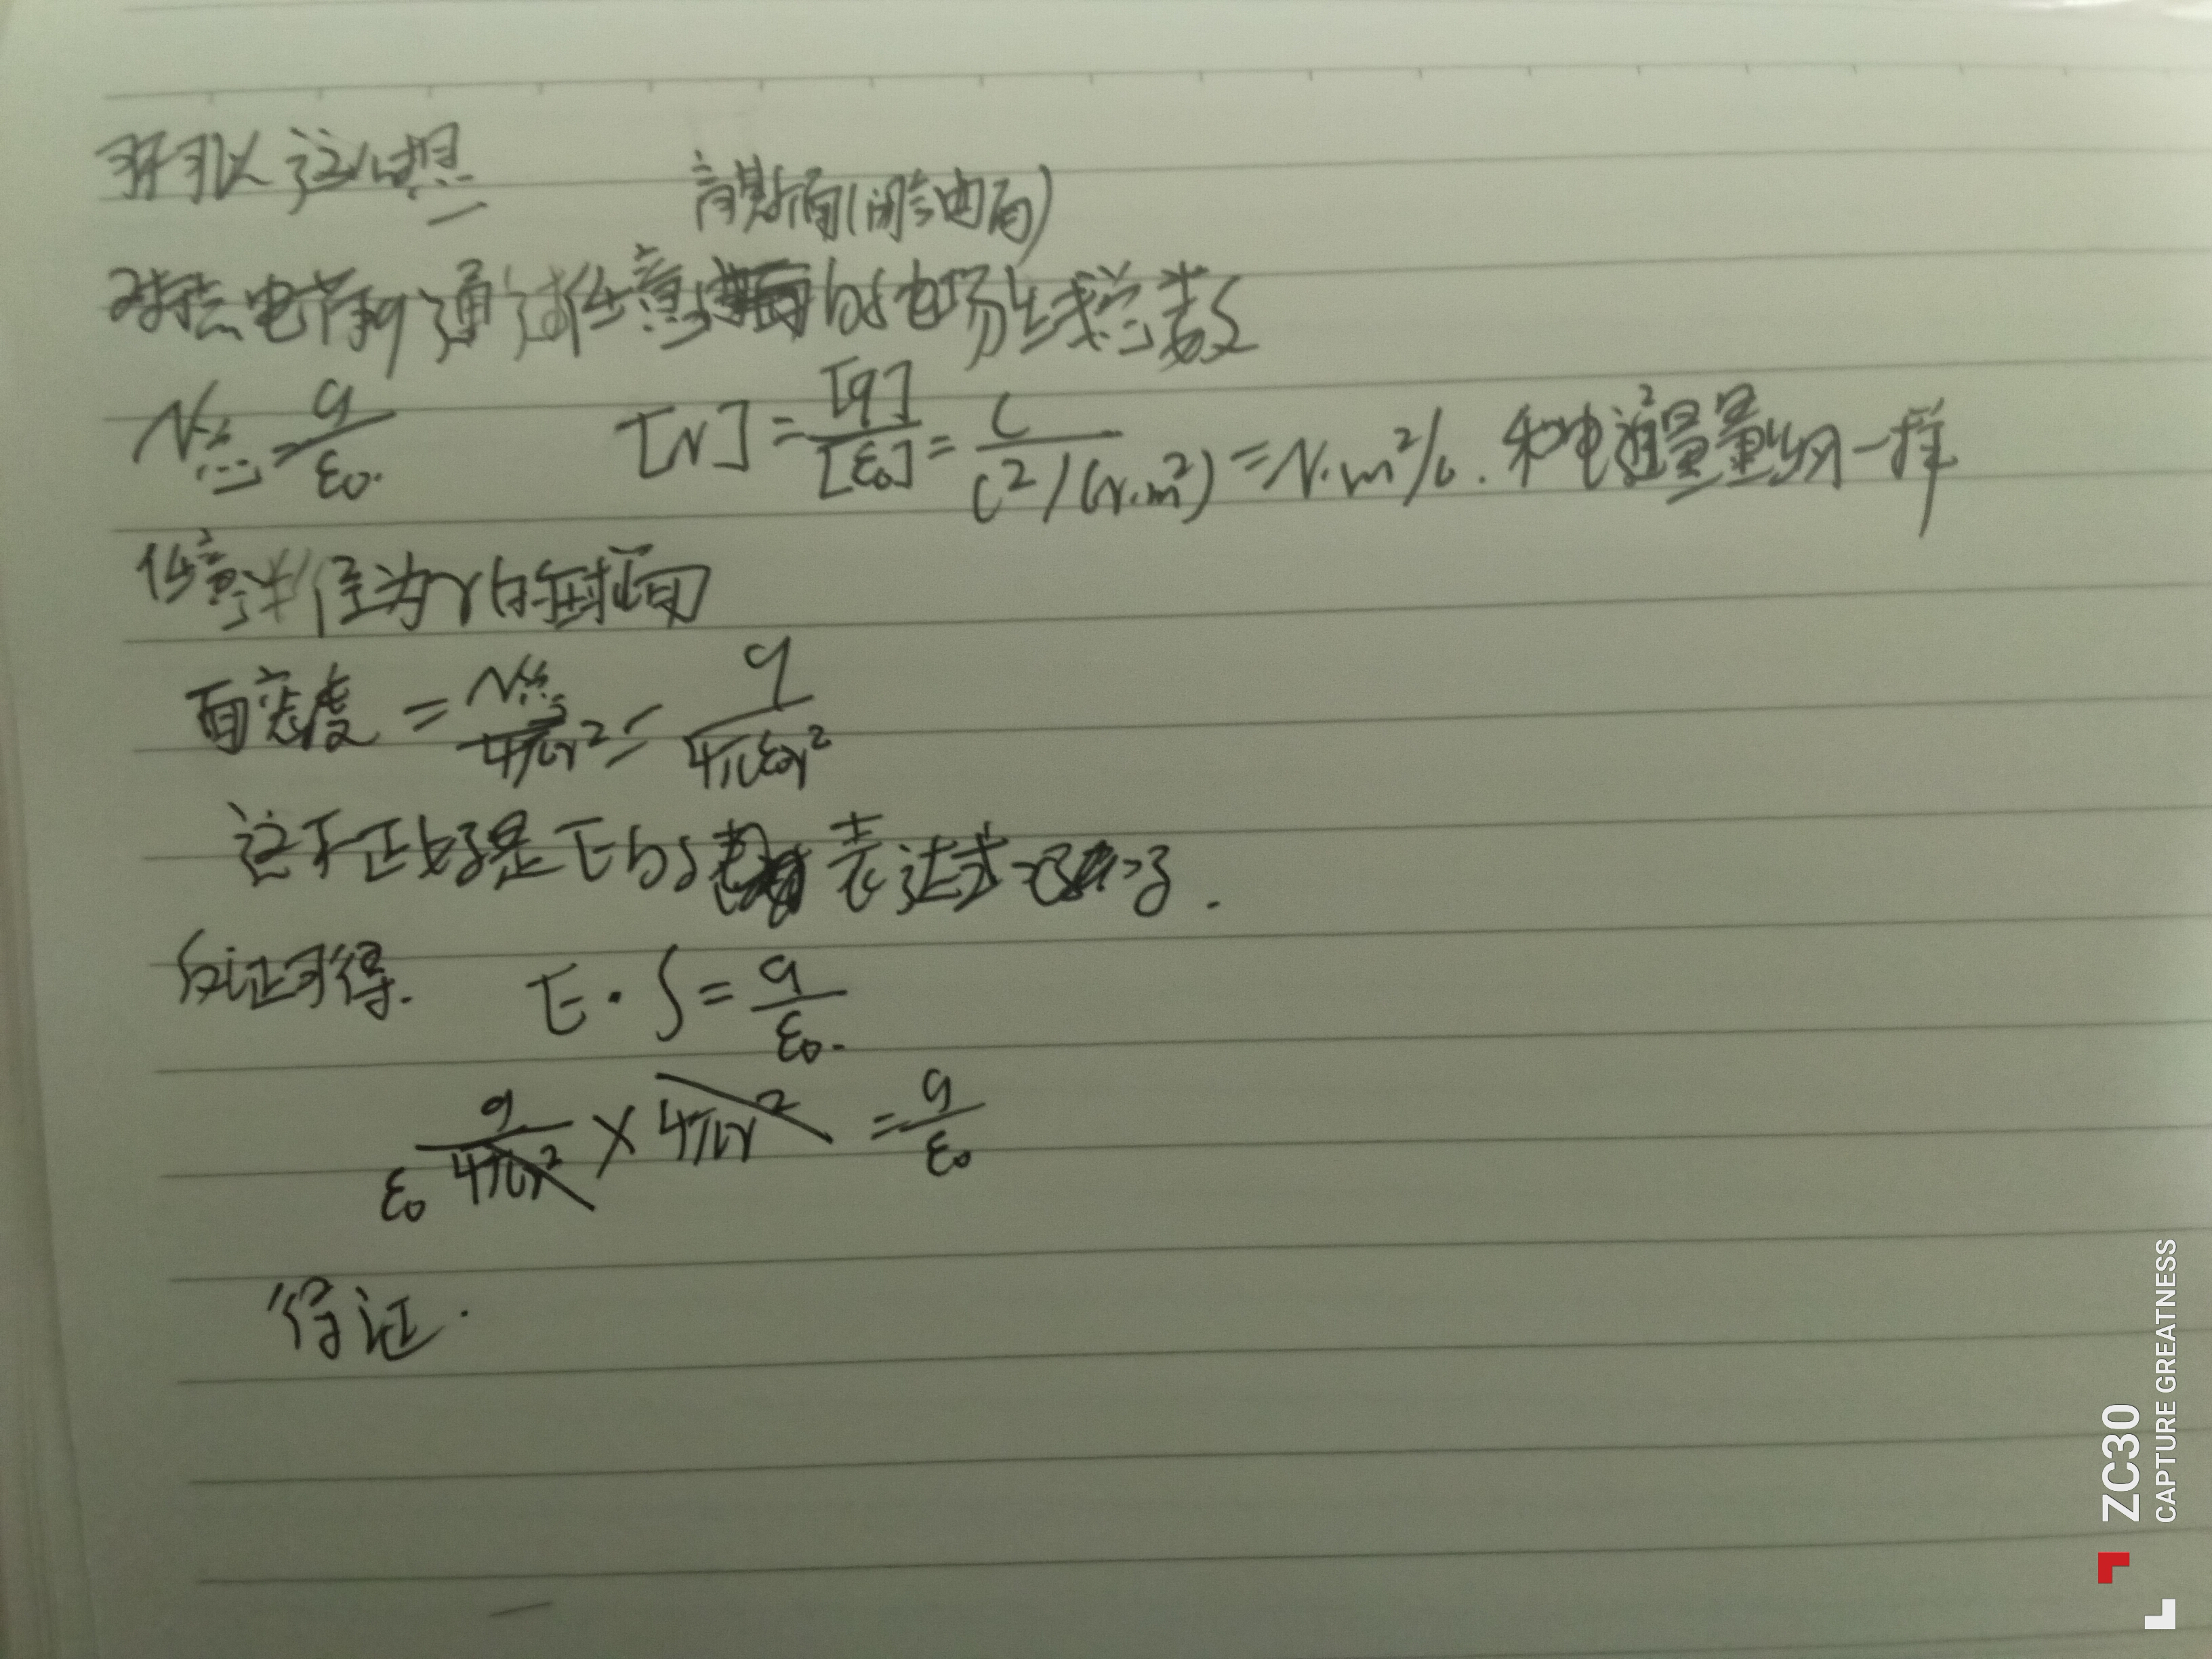 可以这么想
高斯面(闭合曲面)
对点电荷q通过任意的电场线总数
N总=q/ε₀. [N]=[q]/[ε₀]=C/(C²/(N·m²))=N·m²/C.和电通量量纲一样
任意半径为r的球面
面密度=N总/4πr²=q/4πε₀r²
这不正好是E的表达式了.
反证可得. E·S=q/ε₀.
q/ε₀4πr²×4πr²=q/ε₀
得证.
ZC30
CAPTURE GREATNESS